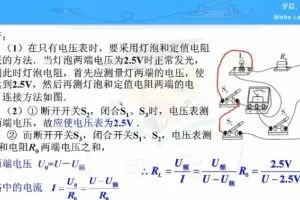 学启
Make Le
（1）在只有电压表时，要采用灯泡和定值电阻
的方法．当灯泡两端电压为2.5V时正常发光，
此时灯泡电阻，首先应测量灯两端的电压，使
2.5V，然后再测灯泡和定值电阻两端的电
连接方法如图．
（2）① 断开开关S₂，闭合S₁、S₃时，电压表测
电压，故应使电压表为2.5V．
② 而断开开关S₃，闭合开关S₁、S₂，电压表测
和电阻R₀两端电压之和，
两端电压 U₀=U－U额
中的电流 I = U₀/R₀ = (U－U额)/R₀
∴ R_L = U额/I = U额/(U－U额) R₀ = 2.5V/(U－2.5V)
L
S₁
S₂
S₃